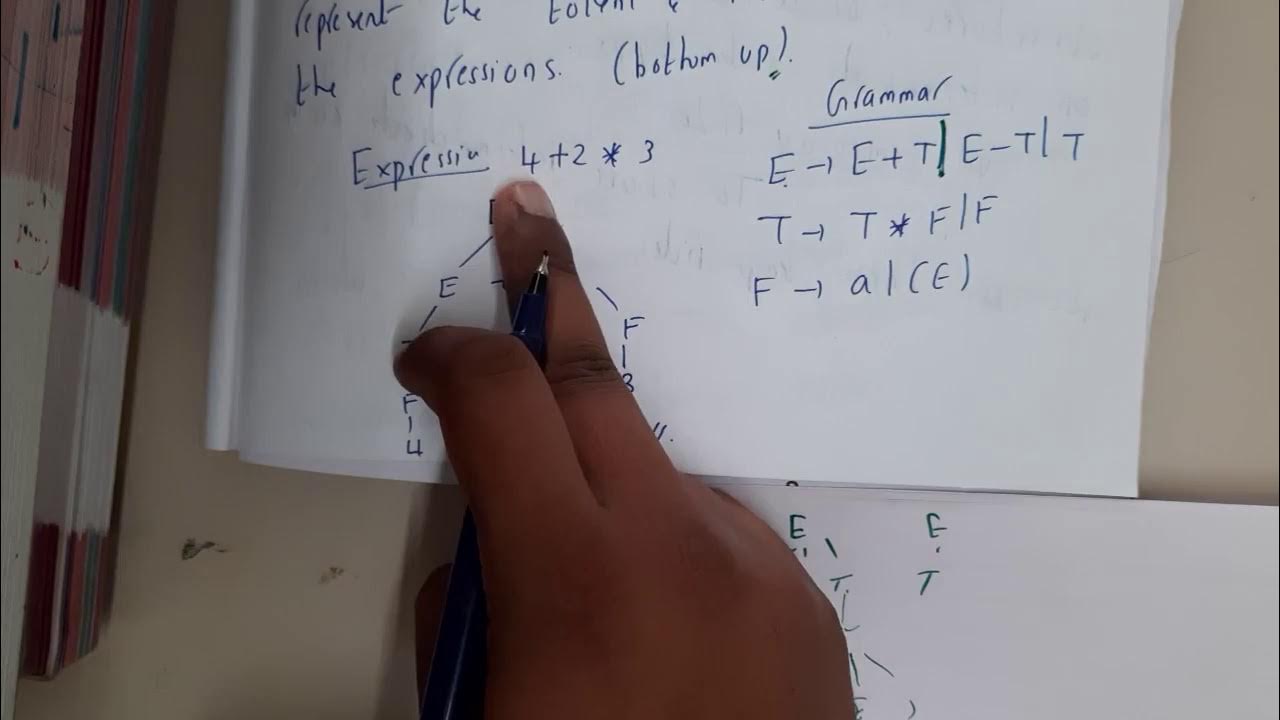 represent the
the expressions. (bottom up).
Grammar
Expression 4+2 * 3
E → E + T | E - T | T
T → T * F | F
F → a | (E)
E
F
3
F
4
E E
T T